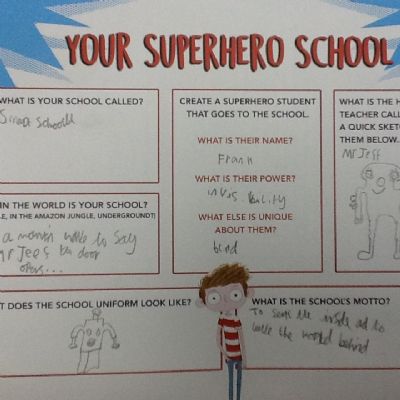 YOUR SUPERHERO SCHOOL
WHAT IS YOUR SCHOOL CALLED?
CREATE A SUPERHERO STUDENT
THAT GOES TO THE SCHOOL.
WHAT IS THEIR NAME?
Frank
WHAT IS THEIR POWER?
WHAT ELSE IS UNIQUE
ABOUT THEM?
blind
WHAT IS THE H
TEACHER CALL
A QUICK SKET
THEM BELOW.
Mr Jeff
IN THE WORLD IS YOUR SCHOOL?
LE, IN THE AMAZON JUNGLE, UNDERGROUND?)
to say
the door
T DOES THE SCHOOL UNIFORM LOOK LIKE?
WHAT IS THE SCHOOL'S MOTTO?
To the to
the world behind